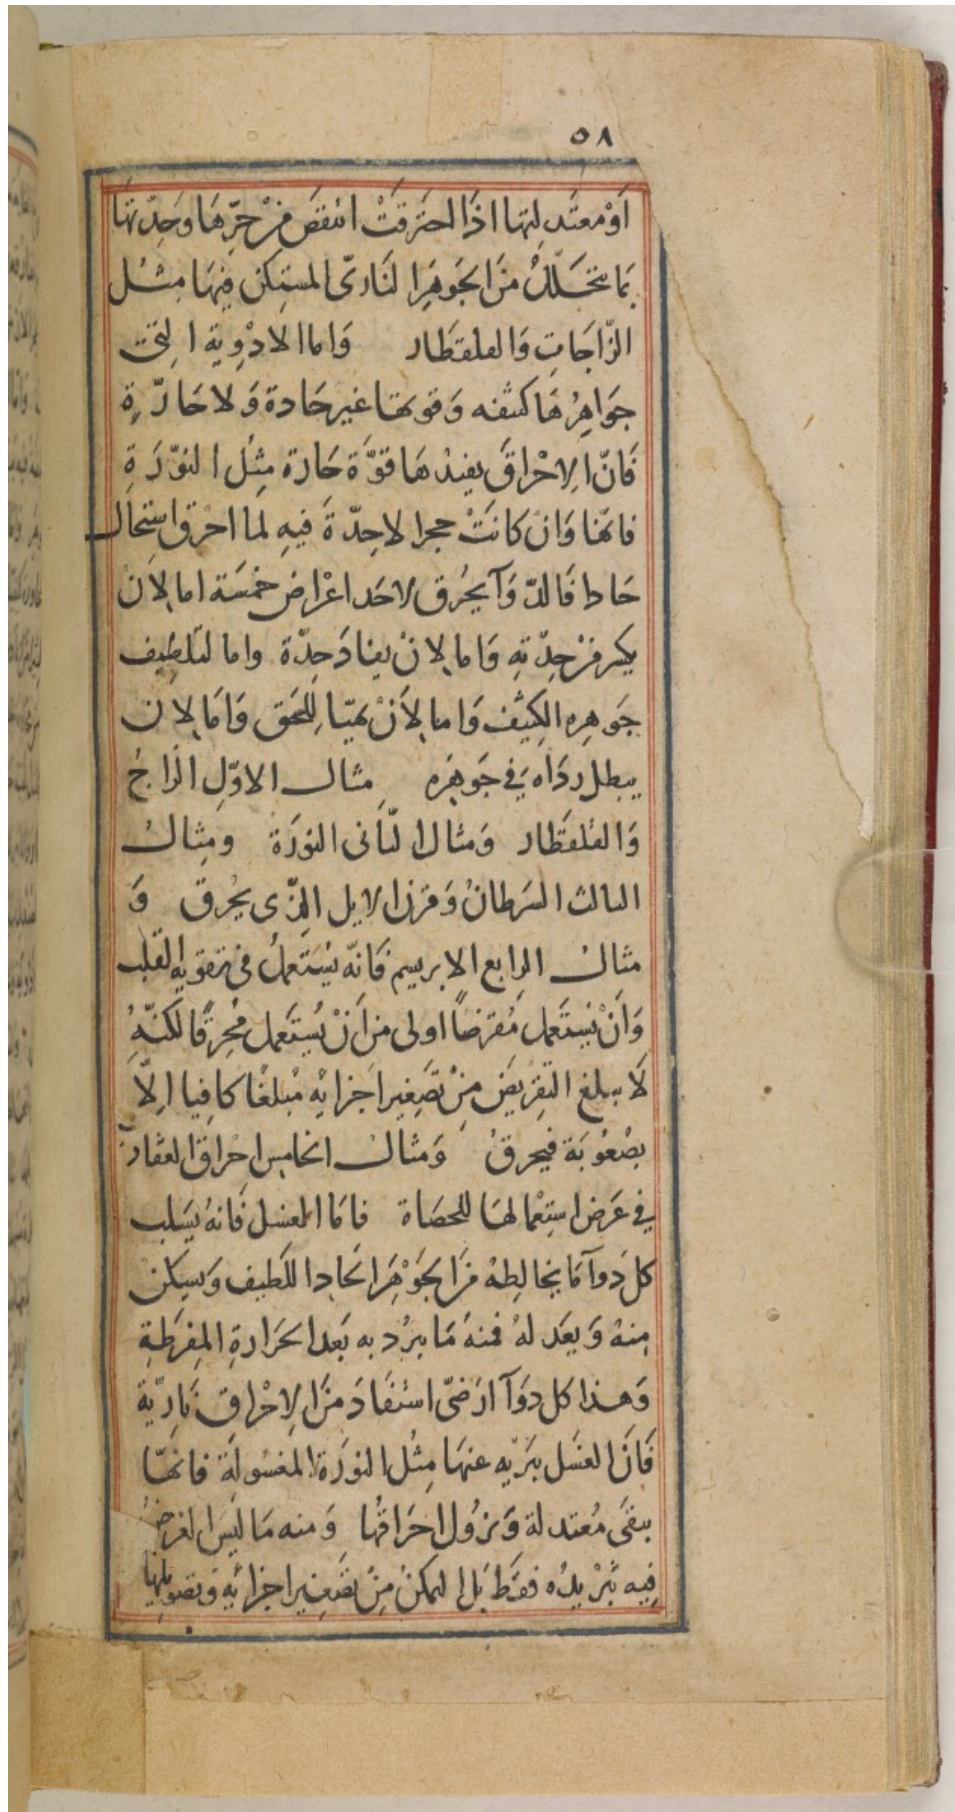 ٥٨
اَوْ معتَدِلتها اذَا احتَرقَتْ انتقصَ مِنْ حَرِّهَا وَحِدّتهَا
بمَا يتحَلّلُ منَ الجَوهَرِ النَارىّ المستكن فِيهَا مِثلُ
الزّاجَاتِ وَالقلقطَار وَاما الادْوِيَة الَّتِى
جوَاهِرُهَا كثيفه وَقوتها غير حَادة وَلا حَارّةٍ
فَانّ الاِحْرَاقَ يفيدُهَا قوَّة حَارة مِثلُ النورَةِ
فانّهَا وَانْ كانَتْ حجرا لا حِدّةَ فيهِ لما احْرق استحَال
حَادا فَالدّوَآ يحُرق لاحَد اعْرَاض خمسَة اما لِاَنْ
يكسر مِنْ حِدّتهِ وَاما لِانْ يفادَ حِدّة واما لتلطِيف
جَوهِرِه الكِثيف وَاما لِاَنْ يهيّا لِلسحق وَاما لِان
يبطل ردَاه فى جَوهَره مثال الاوّلِ الزَاجُ
وَالقلقطَار وَمثال الثّانى النورَة وَمِثالُ
الثالث السَرطانُ وَقرن الايل الّذى يحُرق وَ
مثالُ الرابع الابريسم فَانّه يُستَعملُ فى تقويه القلب
وَاَنْ يُستَعمل مُقرّضاً اولى من اَنْ يُستَعمل مُحرقًا لكنّهُ
لَا يبلغ التقرِيضُ مِنْ تَصغِير اجزايْه مَبلغًا كافيا اِلّاَ
بصُعُوبَة فيحرقُ وَمثالُ الخامِس احرَاق العقارب
فِى عَرَض استِعْمَالهَا للحصَاة فامَا الغسل فَانهُ يَسلب
كل دَوآ مَا يخالِطهُ مِنَ الجَوْهَر الحَاد اللَطِيف وَيسكن
مِنهُ وَيعَدلهُ فمنهُ مَا يبرُد به بَعد الحَرَارةِ المفرَطةِ
وَهذا كل دوَآ ارَضىّ استَفَادَ منَ الاِحْرَاق نَارِيّة
فَانَ الغسْل يبَرّيه عنهَا مِثلُ النورَة المغسُولَة فانهّا
يبقَى مُعتدلة وَيَزُول احرَاقُها وَمنه مَا ليَسَ الغرضُ
فِيه تَبْرِيدُه فقَط بَل ليمكنْ مِنْ تصَغير اجزائِه وَتصويلها